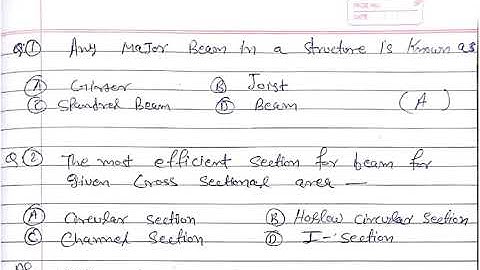 PAGE NO.
DATE
Q.① Any Major Beam in a structure is Known as
Ⓐ Girder Ⓑ Joist
Ⓒ Spandrel Beam Ⓓ Beam (A)
Q.② The most efficient section for beam for
given cross sectional area —
Ⓐ Circular section Ⓑ Hollow circular section
Ⓒ Channel Section Ⓓ I-section